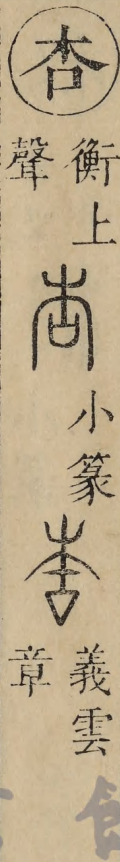 杏 衡上聲 杏 小篆 杏 義雲章